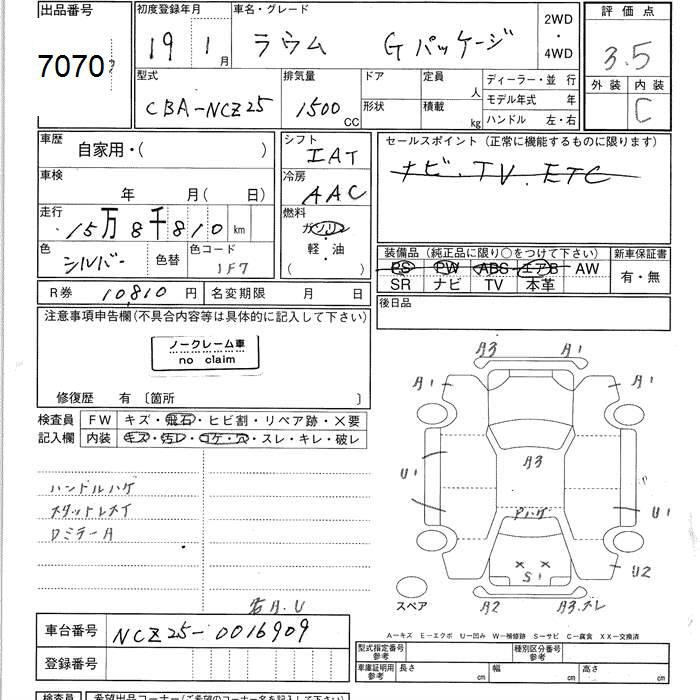 出品番号
7070
初度登録年月
19年 1月
車名・グレード
ラウム Gパッケージ
2WD
・
4WD
評価点
3.5
外装 内装
C
型式
CBA-NCZ25
排気量
1500 CC
ドア
形状
定員 人
積載 kg
ディーラー・並 行
モデル年式 年
ハンドル 左・右
車歴
自家用・( )
シフト
IAT
セールスポイント (正常に機能するものに限ります)
ナビ.TV.ETC
車検
年 月( 日)
冷房
AAC
走行
15万8千810 km
燃料
ガソリン
軽・油
( )
色
シルバー
色替
色コード
1F7
装備品 (純正品に限り○をつけて下さい)
PS PW ABS エアB AW
SR ナビ TV 本革
新車保証書
有・無
R券 10,810円
名変期限 月 日
後日品
注意事項申告欄(不具合内容等は具体的に記入して下さい)
ノークレーム車
no claim
修復歴 有 〔箇所 〕
検査員
記入欄
FW キズ・飛石・ヒビ割・リペア跡・×要
内装 キズ・汚レ・コゲ・穴・スレ・キレ・破レ
ハンドルハゲ
A3 A1
A1 A1
A3
U1 U1
Pハゲ
S1
U2
A2
スペア
A-キズ E-エクボ U-凹み W-補修跡 S-サビ C-腐食 XX-交換済
車台番号 NCZ25-0016909
登録番号
型式指定番号
参考
種別区分番号
参考
車庫証明用
参考
長さ cm 幅 cm 高さ cm
検査員 希望出品コーナー(ご希望のコーナー名を記入下さい)